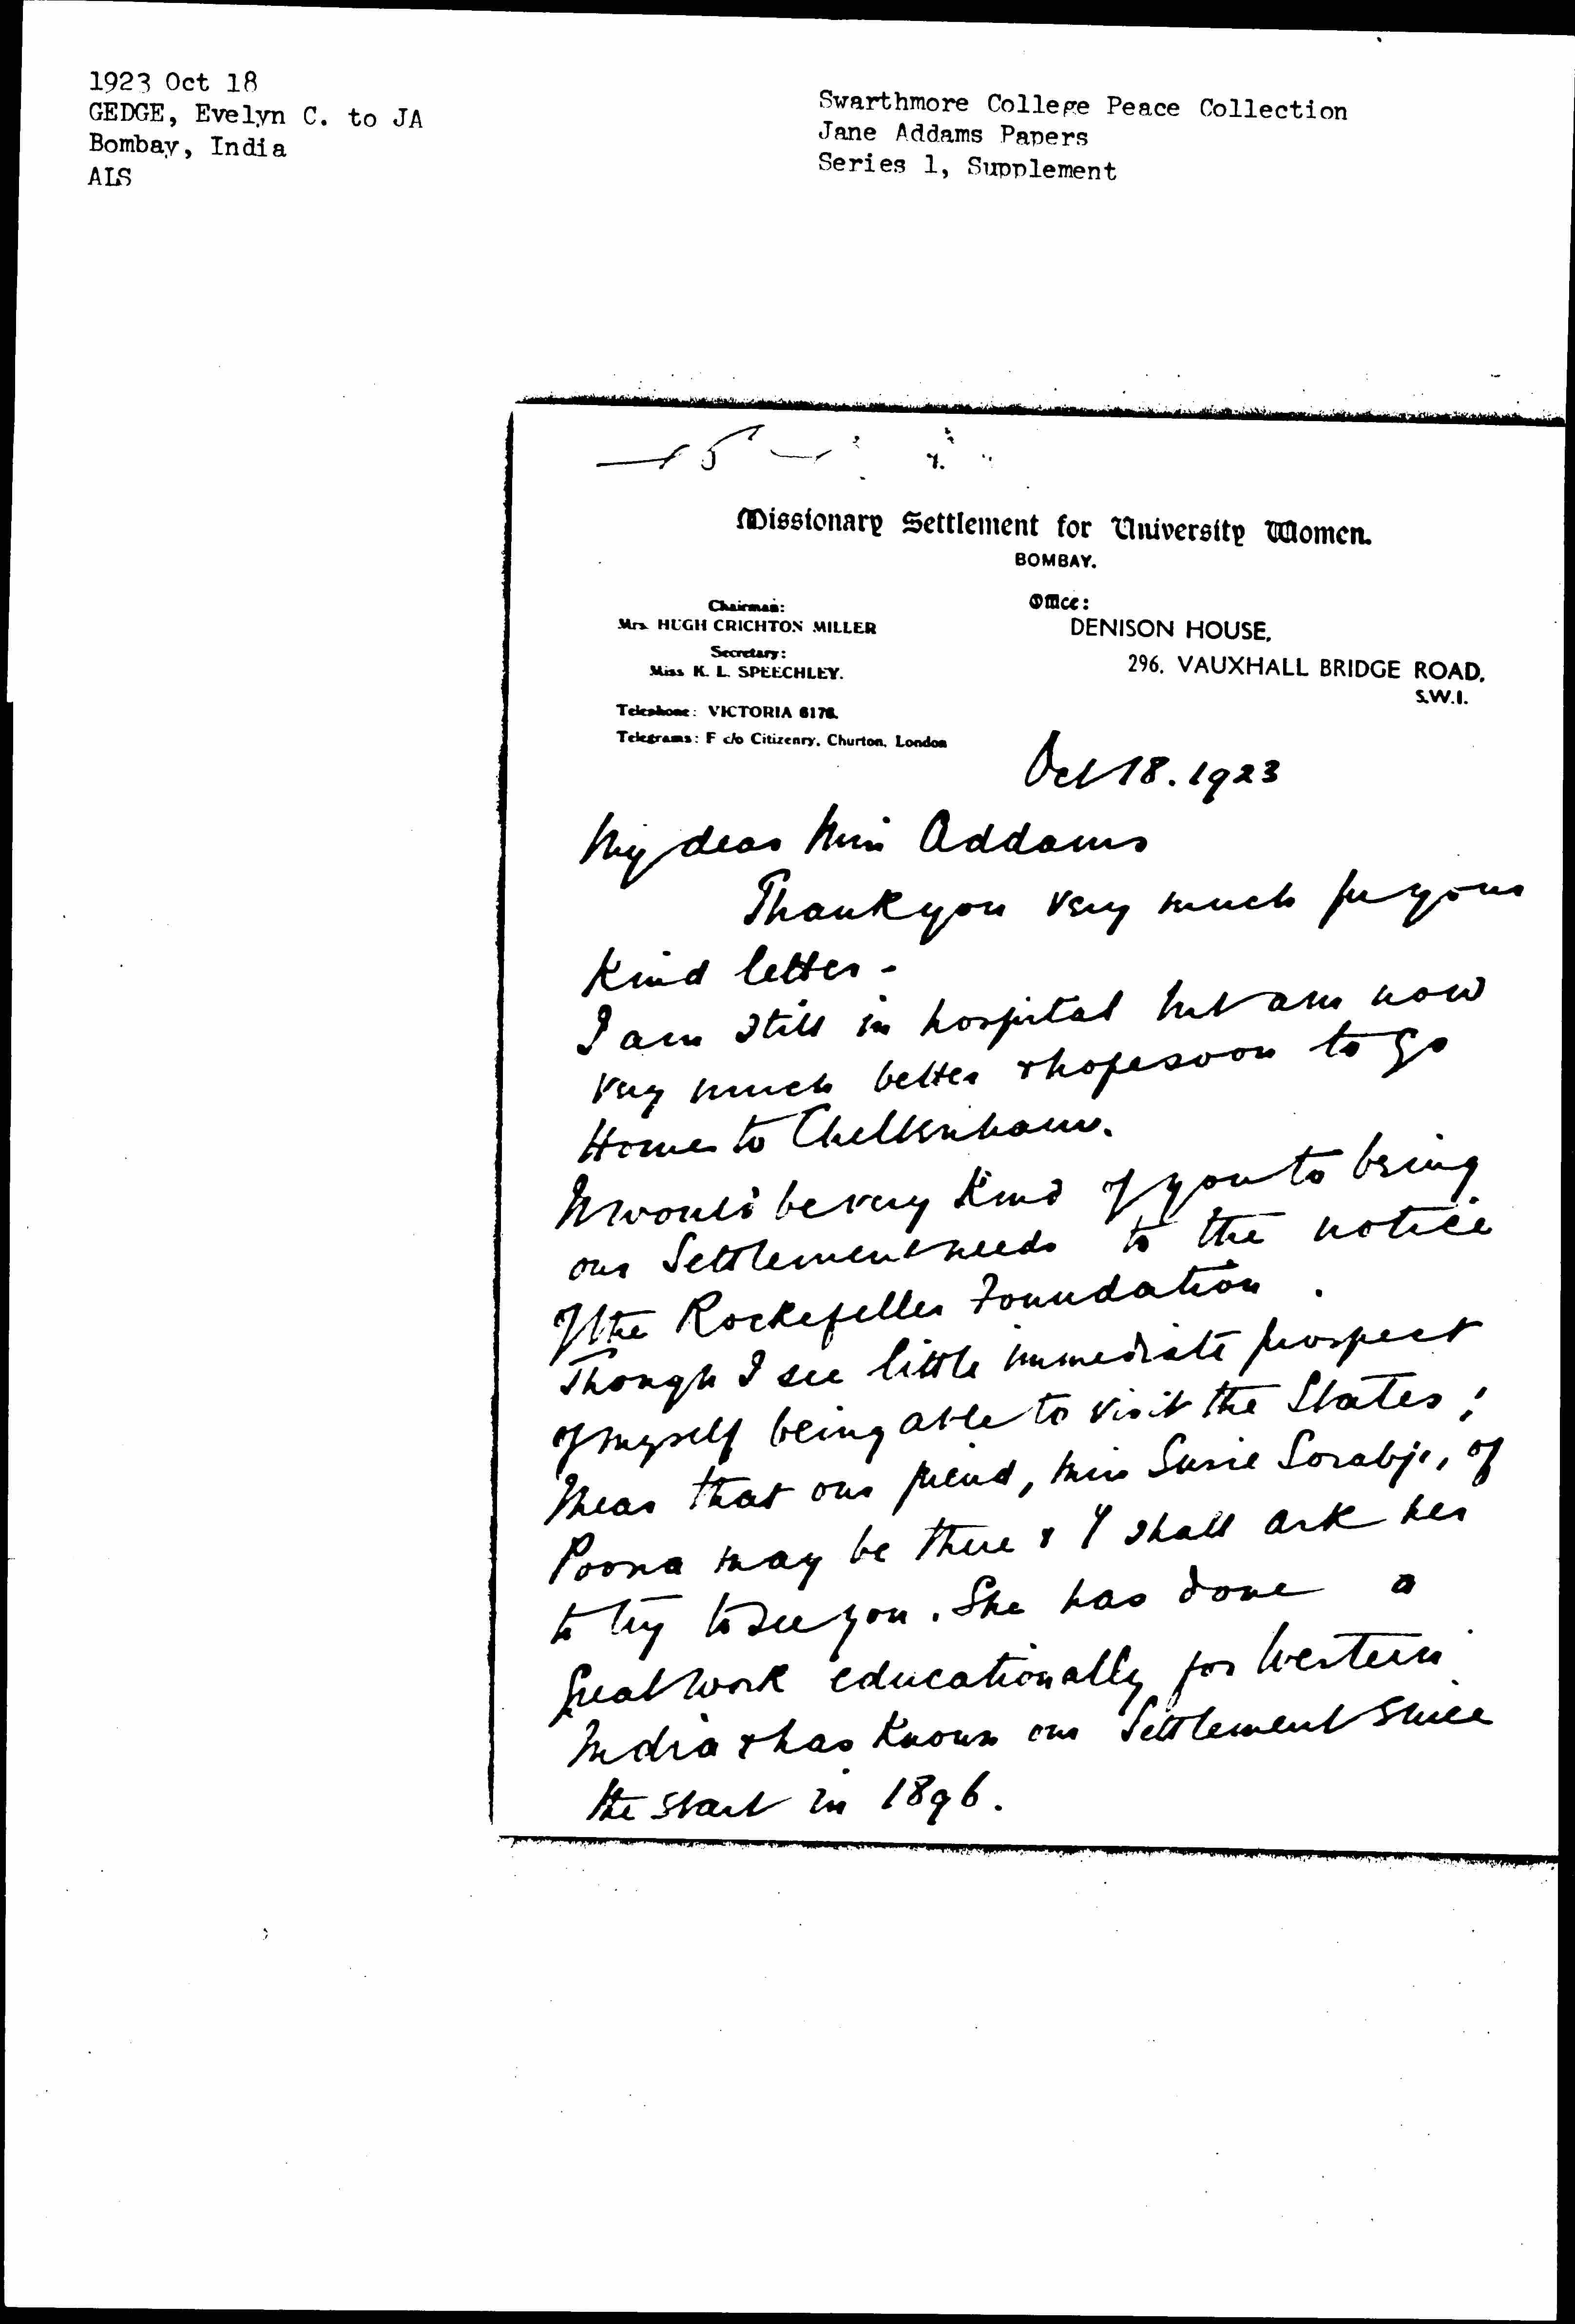 1923 Oct 18
GEDGE, Evelyn C. to JA
Bombay, India
ALS
Swarthmore College Peace Collection
Jane Addams Papers
Series 1, Supplement
Missionary Settlement for University Women.
BOMBAY.
Chairman:
Mrs. HUGH CRICHTON MILLER
Secretary:
Miss K. L. SPEECHLEY.
Telephone: VICTORIA 6176.
Telegrams: F c/o Citizenry, Churton, London
Office:
DENISON HOUSE,
296, VAUXHALL BRIDGE ROAD,
S.W.1.
Oct 18. 1923
My dear Miss Addams
Thank you very much for your
kind letter -
I am still in hospital but am now
very much better & hope soon to go
Home to Cheltenham.
It would be very kind of you to bring
our Settlement needs to the notice
of the Rockefeller Foundation.
Though I see little immediate prospect
of myself being able to visit the States;
I hear that our friend, Miss Susie Sorabji, of
Poona may be there & I shall ask her
to try to see you. She has done a
great work educationally for Western
India & has known our Settlement since
the start in 1896.